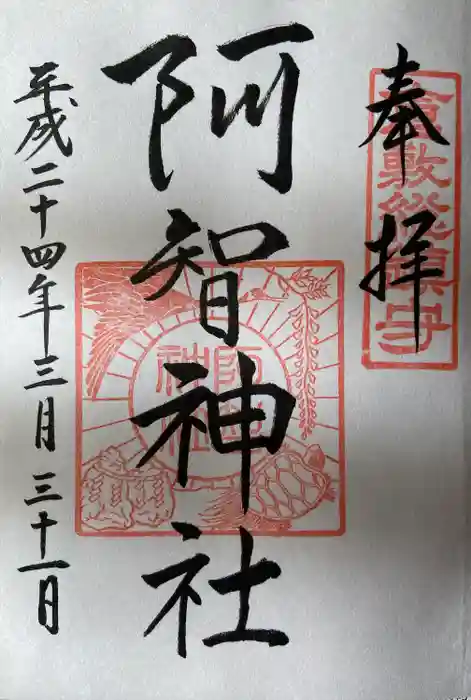 奉拝
倉敷総鎮守
阿智神社
阿智神社
平成二十四年三月三十一日